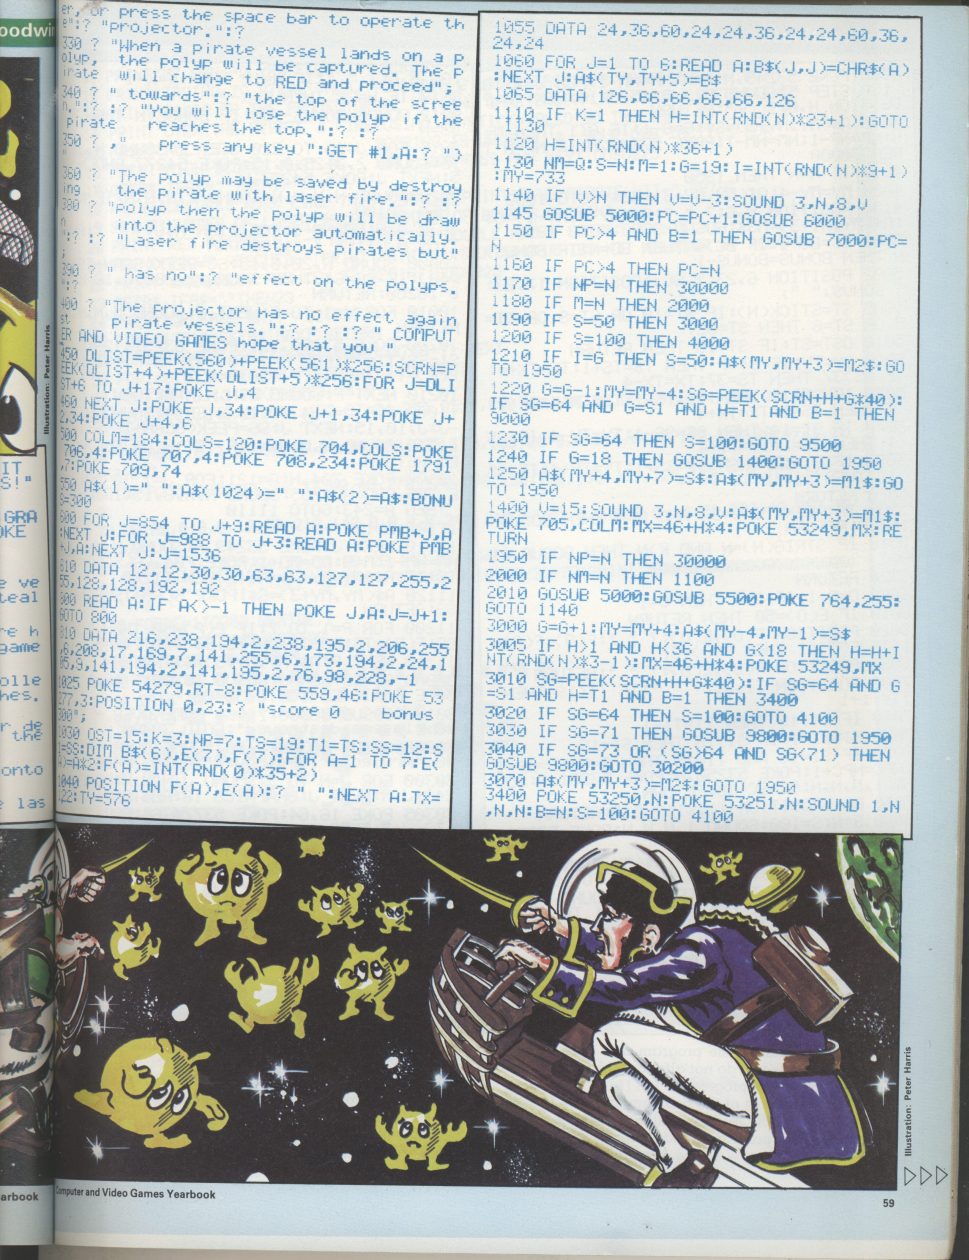 oodwi
Illustration: Peter Harris
IT
S!"
GRA
OKE
e ve
teal
re h
game
olle
hes.
r de
the
onto
e las
arbook
er, or press the space bar to operate th
e":? "projector.":?
330 ? "When a pirate vessel lands on a p
olyp, the polyp will be captured. The p
irate will change to RED and proceed";
340 ? " towards":? "the top of the scree
n.":? :? "You will lose the polyp if the
pirate reaches the top.":? :?
350 ? ," press any key ":GET #1,A:? "}
"
360 ? "The polyp may be saved by destroy
ing the pirate with laser fire.":? :?
380 ? "polyp then the polyp will be draw
n into the projector automatically.
":? :? "Laser fire destroys pirates but"
;
390 ? " has no":? "effect on the polyps.
":?
400 ? "The projector has no effect again
st pirate vessels.":? :? :? " COMPUT
ER AND VIDEO GAMES hope that you "
450 DLIST=PEEK(560)+PEEK(561)*256:SCRN=P
EEK(DLIST+4)+PEEK(DLIST+5)*256:FOR J=DLI
ST+6 TO J+17:POKE J,4
460 NEXT J:POKE J,34:POKE J+1,34:POKE J+
2,34:POKE J+4,6
500 COLM=184:COLS=120:POKE 704,COLS:POKE
706,4:POKE 707,4:POKE 708,234:POKE 1791
,7:POKE 709,74
550 A$(1)=" ":A$(1024)=" ":A$(2)=A$:BONU
S=300
600 FOR J=854 TO J+9:READ A:POKE PMB+J,A
:NEXT J:FOR J=988 TO J+3:READ A:POKE PMB
+J,A:NEXT J:J=1536
610 DATA 12,12,30,30,63,63,127,127,255,2
55,128,128,192,192
800 READ A:IF A<>-1 THEN POKE J,A:J=J+1:
GOTO 800
810 DATA 216,238,194,2,238,195,2,206,255
,6,208,17,169,7,141,255,6,173,194,2,24,1
05,9,141,194,2,141,195,2,76,98,228,-1
1025 POKE 54279,RT-8:POKE 559,46:POKE 53
277,3:POSITION 0,23:? "score 0 bonus
300";
1030 OST=15:K=3:NP=7:TS=19:T1=TS:SS=12:S
1=SS:DIM B$(6),E(7),F(7):FOR A=1 TO 7:E(
A)=A*2:F(A)=INT(RND(0)*35+2)
1040 POSITION F(A),E(A):? " ":NEXT A:TX=
22:TY=576
1055 DATA 24,36,60,24,24,36,24,24,60,36,
24,24
1060 FOR J=1 TO 6:READ A:B$(J,J)=CHR$(A)
:NEXT J:A$(TY,TY+5)=B$
1065 DATA 126,66,66,66,66,126
1110 IF K=1 THEN H=INT(RND(N)*23+1):GOTO
1130
1120 H=INT(RND(N)*36+1)
1130 NM=Q:S=N:M=1:G=19:I=INT(RND(N)*9+1)
:MY=733
1140 IF V>N THEN V=V-3:SOUND 3,N,8,V
1145 GOSUB 5000:PC=PC+1:GOSUB 6000
1150 IF PC>4 AND B=1 THEN GOSUB 7000:PC=
N
1160 IF PC>4 THEN PC=N
1170 IF NP=N THEN 30000
1180 IF M=N THEN 2000
1190 IF S=50 THEN 3000
1200 IF S=100 THEN 4000
1210 IF I=G THEN S=50:A$(MY,MY+3)=M2$:GO
TO 1950
1220 G=G-1:MY=MY-4:SG=PEEK(SCRN+H+G*40):
IF SG=64 AND G=S1 AND H=T1 AND B=1 THEN
9000
1230 IF SG=64 THEN S=100:GOTO 9500
1240 IF G=18 THEN GOSUB 1400:GOTO 1950
1250 A$(MY+4,MY+7)=S$:A$(MY,MY+3)=M1$:GO
TO 1950
1400 V=15:SOUND 3,N,8,V:A$(MY,MY+3)=M1$:
POKE 705,COLM:MX=46+H*4:POKE 53249,MX:RE
TURN
1950 IF NP=N THEN 30000
2000 IF NM=N THEN 1100
2010 GOSUB 5000:GOSUB 5500:POKE 764,255:
GOTO 1140
3000 G=G+1:MY=MY+4:A$(MY-4,MY-1)=S$
3005 IF H>1 AND H<36 AND G<18 THEN H=H+I
NT(RND(N)*3-1):MX=46+H*4:POKE 53249,MX
3010 SG=PEEK(SCRN+H+G*40):IF SG=64 AND G
=S1 AND H=T1 AND B=1 THEN 3400
3020 IF SG=64 THEN S=100:GOTO 4100
3030 IF SG=71 THEN GOSUB 9800:GOTO 1950
3040 IF SG=73 OR (SG>64 AND SG<71) THEN
GOSUB 9800:GOTO 30200
3070 A$(MY,MY+3)=M2$:GOTO 1950
3400 POKE 53250,N:POKE 53251,N:SOUND 1,N
,N,N:B=N:S=100:GOTO 4100
Illustration: Peter Harris
Computer and Video Games Yearbook
59